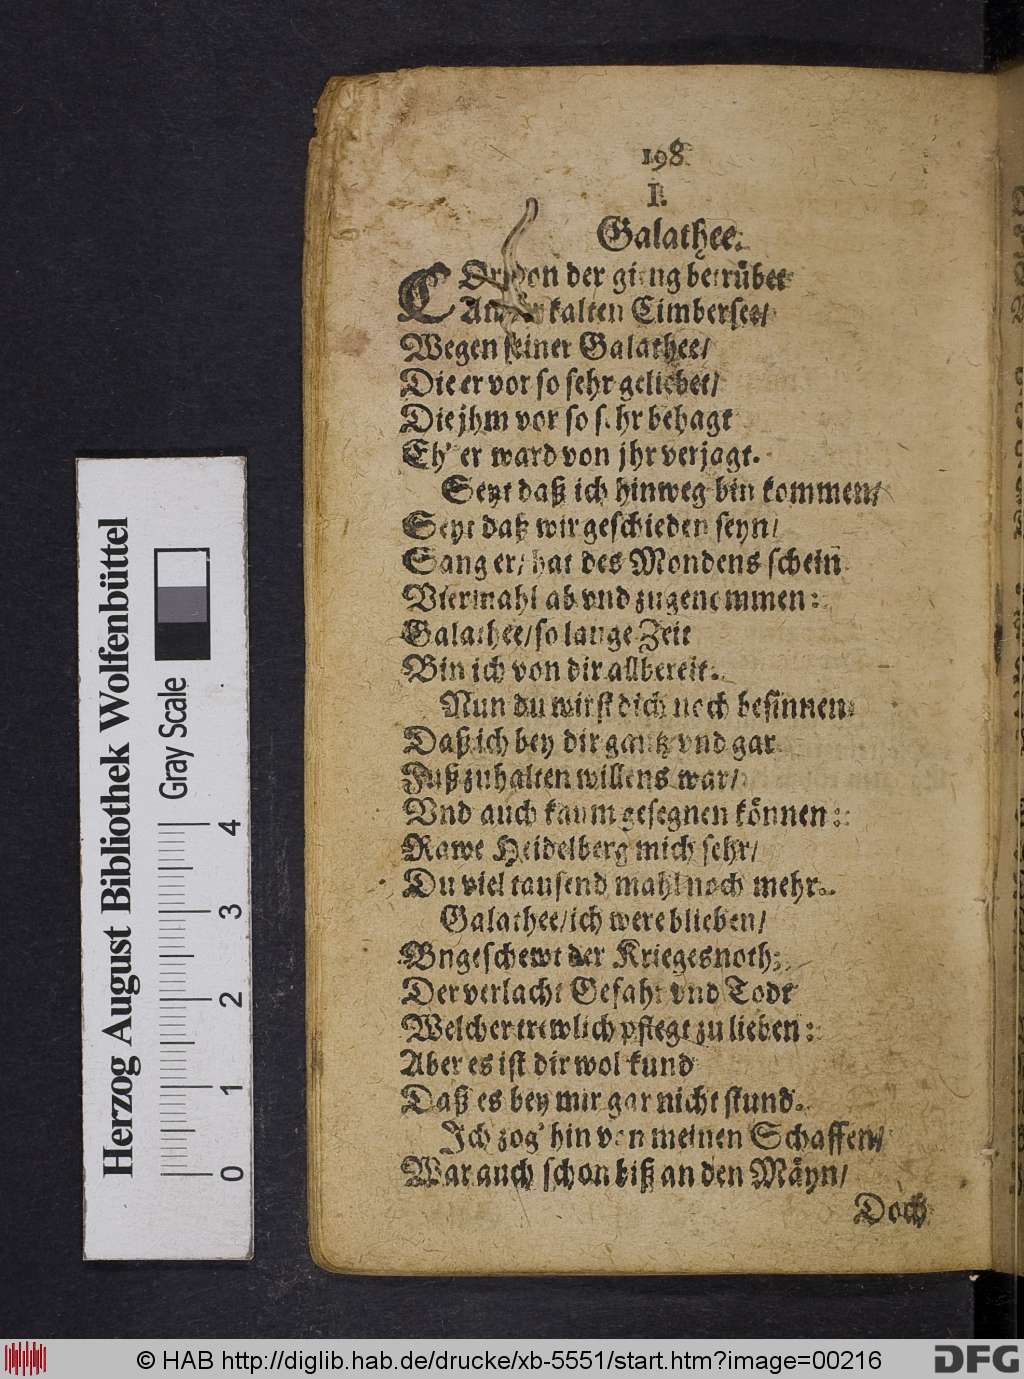 198
I.
Galathee.
COridon der gieng betrübet
An der kalten Cimbersee/
Wegen seiner Galathee/
Die er vor so sehr geliebet/
Die jhm vor so sehr behagt
Eh' er ward von jhr verjagt.
Seyt daß ich hinweg bin kommen/
Seyt daß wir geschieden seyn/
Sang er/ hat des Mondens schein
Viermahl ab vnd zugenommen:
Galathee/ so lange Zeit
Bin ich von dir allbereit.
Nun du wirst dich noch besinnen
Daß ich bey dir gantz vnd gar
Fuß zuhalten willens war/
Vnd auch kaum gesegnen können:
Rawe Heidelberg mich sehr/
Du viel tausend mahl noch mehr.
Galathee/ ich were blieben/
Vngeschewt der Kriegesnoth;
Der verlacht Gefahr vnd Todt
Welcher trewlich pflegt zu lieben:
Aber es ist dir wol kund
Daß es bey mir gar nicht stund.
Ich zog' hin von meinen Schaffen/
War auch schon biß an den Mäyn/
Doch
Herzog August Bibliothek Wolfenbüttel
Gray Scale
0 1 2 3 4
© HAB http://diglib.hab.de/drucke/xb-5551/start.htm?image=00216
DFG